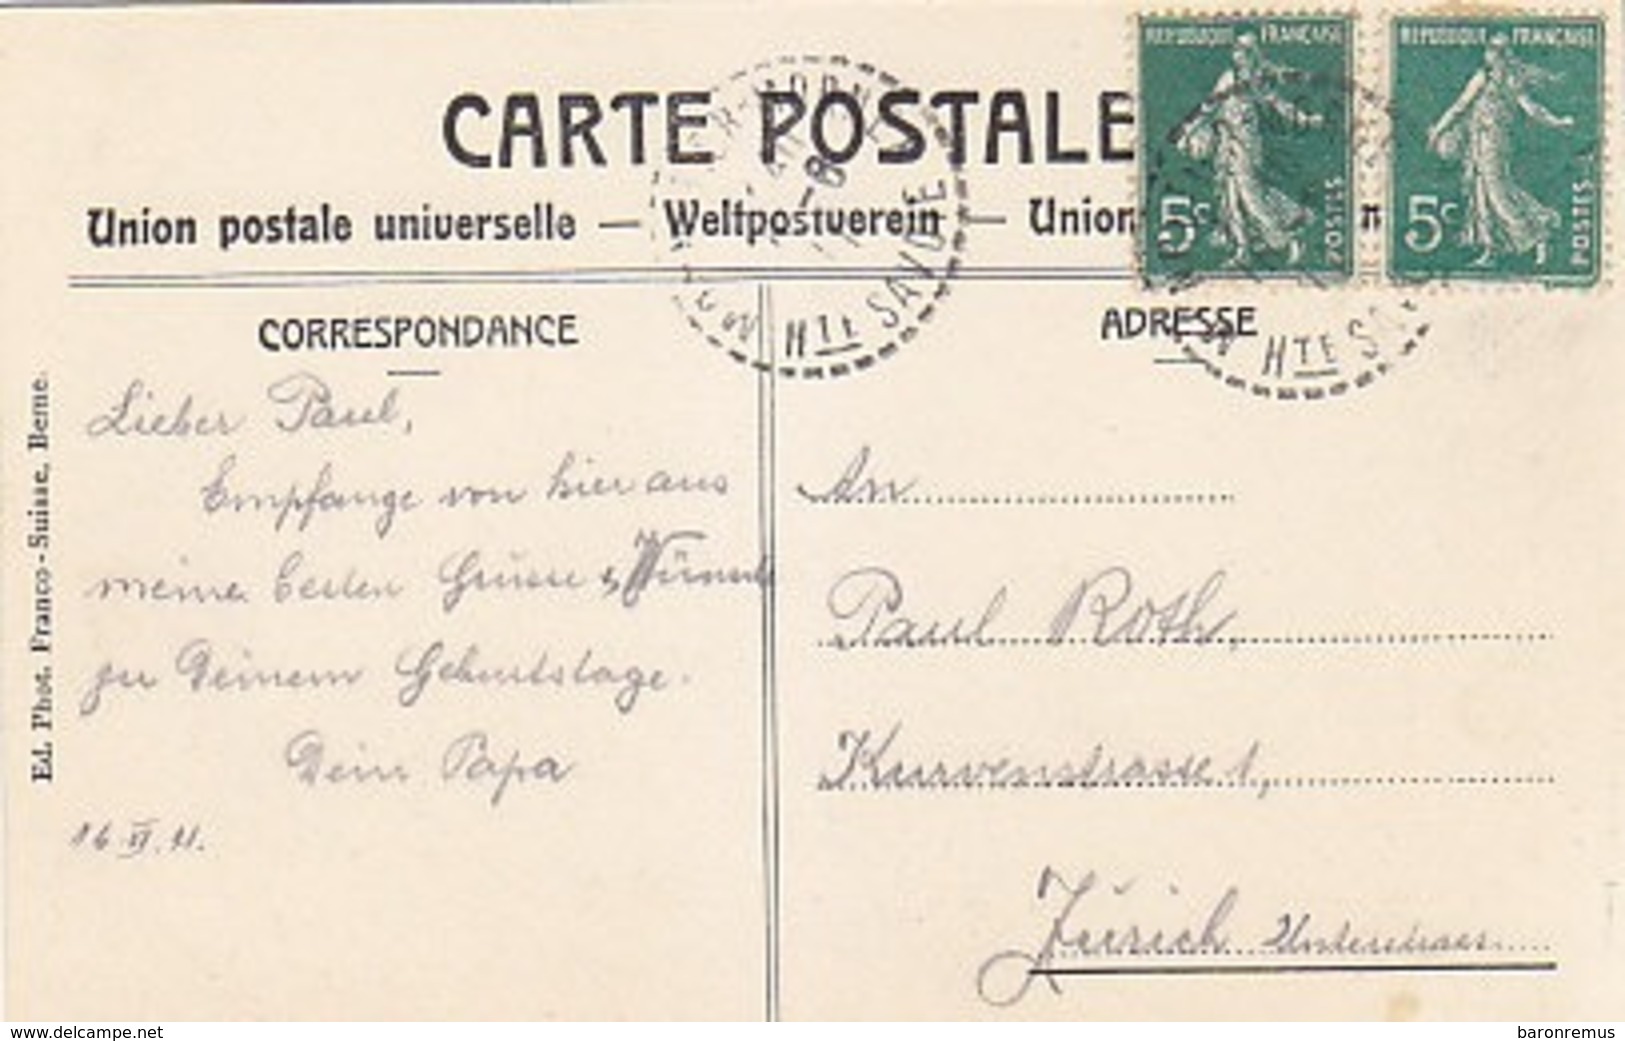 CARTE POSTALE
Union postale universelle — Weltpostverein — Union n
REPUBLIQUE FRANÇAISE
5c POSTES
REPUBLIQUE FRANÇAISE
5c POSTES
HTE SAVOIE
HTE
CORRESPONDANCE
ADRESSE
Lieber Paul,
Empfange von hier aus
meine besten Grüsse & Wünsche
zu Deinem Geburtstage.
Dein Papa
An
Paul Roth,
Kurvenstrasse 1,
Zürich Unterstrass
Ed. Phot. Franco-Suisse, Berne.
www.delcampe.net
baronremus